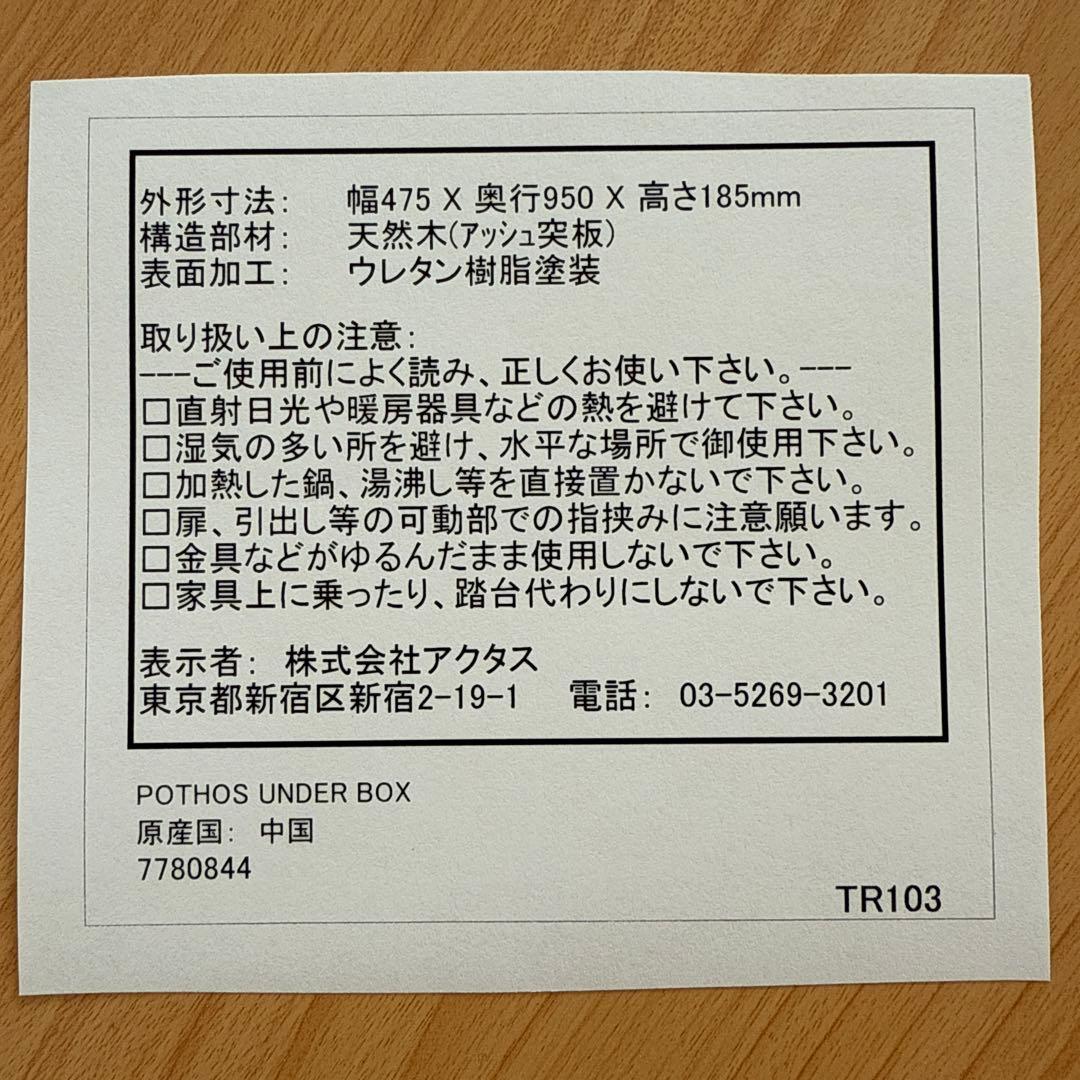 外形寸法: 幅475 X 奥行950 X 高さ185mm
構造部材: 天然木(アッシュ突板)
表面加工: ウレタン樹脂塗装
取り扱い上の注意:
---ご使用前によく読み、正しくお使い下さい。---
□直射日光や暖房器具などの熱を避けて下さい。
□湿気の多い所を避け、水平な場所で御使用下さい。
□加熱した鍋、湯沸し等を直接置かないで下さい。
□扉、引出し等の可動部での指挟みに注意願います。
□金具などがゆるんだまま使用しないで下さい。
□家具上に乗ったり、踏台代わりにしないで下さい。
表示者: 株式会社アクタス
東京都新宿区新宿2-19-1 電話: 03-5269-3201
POTHOS UNDER BOX
原産国: 中国
7780844
TR103